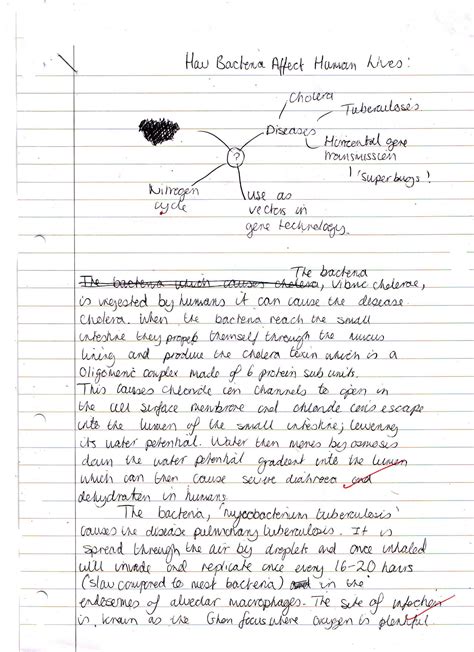 How Bacteria Affect Human Lives:
Cholera
Tuberculosis
Diseases
Horizontal gene
transmission
'Superbugs'
?
Nitrogen
cycle
use as
vectors in
gene technology.
The bacteria
The bacteria which causes cholera, Vibrio cholerae,
is ingested by humans it can cause the disease
cholera. When the bacteria reach the small
intestine they propel themself through the mucus
lining and produce the cholera toxin which is a
Oligomeric complex made of 6 protein sub units.
This causes chloride ion channels to open in
the cell surface membrane and chloride ions escape
into the lumen of the small intestine; lowering
its water potential. Water then moves by osmosis
down the water potential gradient into the lumen
which can then cause severe diahroea and
dehydration in humans.
The bacteria, 'mycobacterium tuberculosis'
causes the disease pulmonary tuberculosis. It is
spread through the air by droplets and once inhaled
will invade and replicate once every 16-20 hours
(slow compared to most bacteria) in the
endosomes of alveolar macrophages. The site of infection
is known as the Ghon focus where oxygen is plentiful.